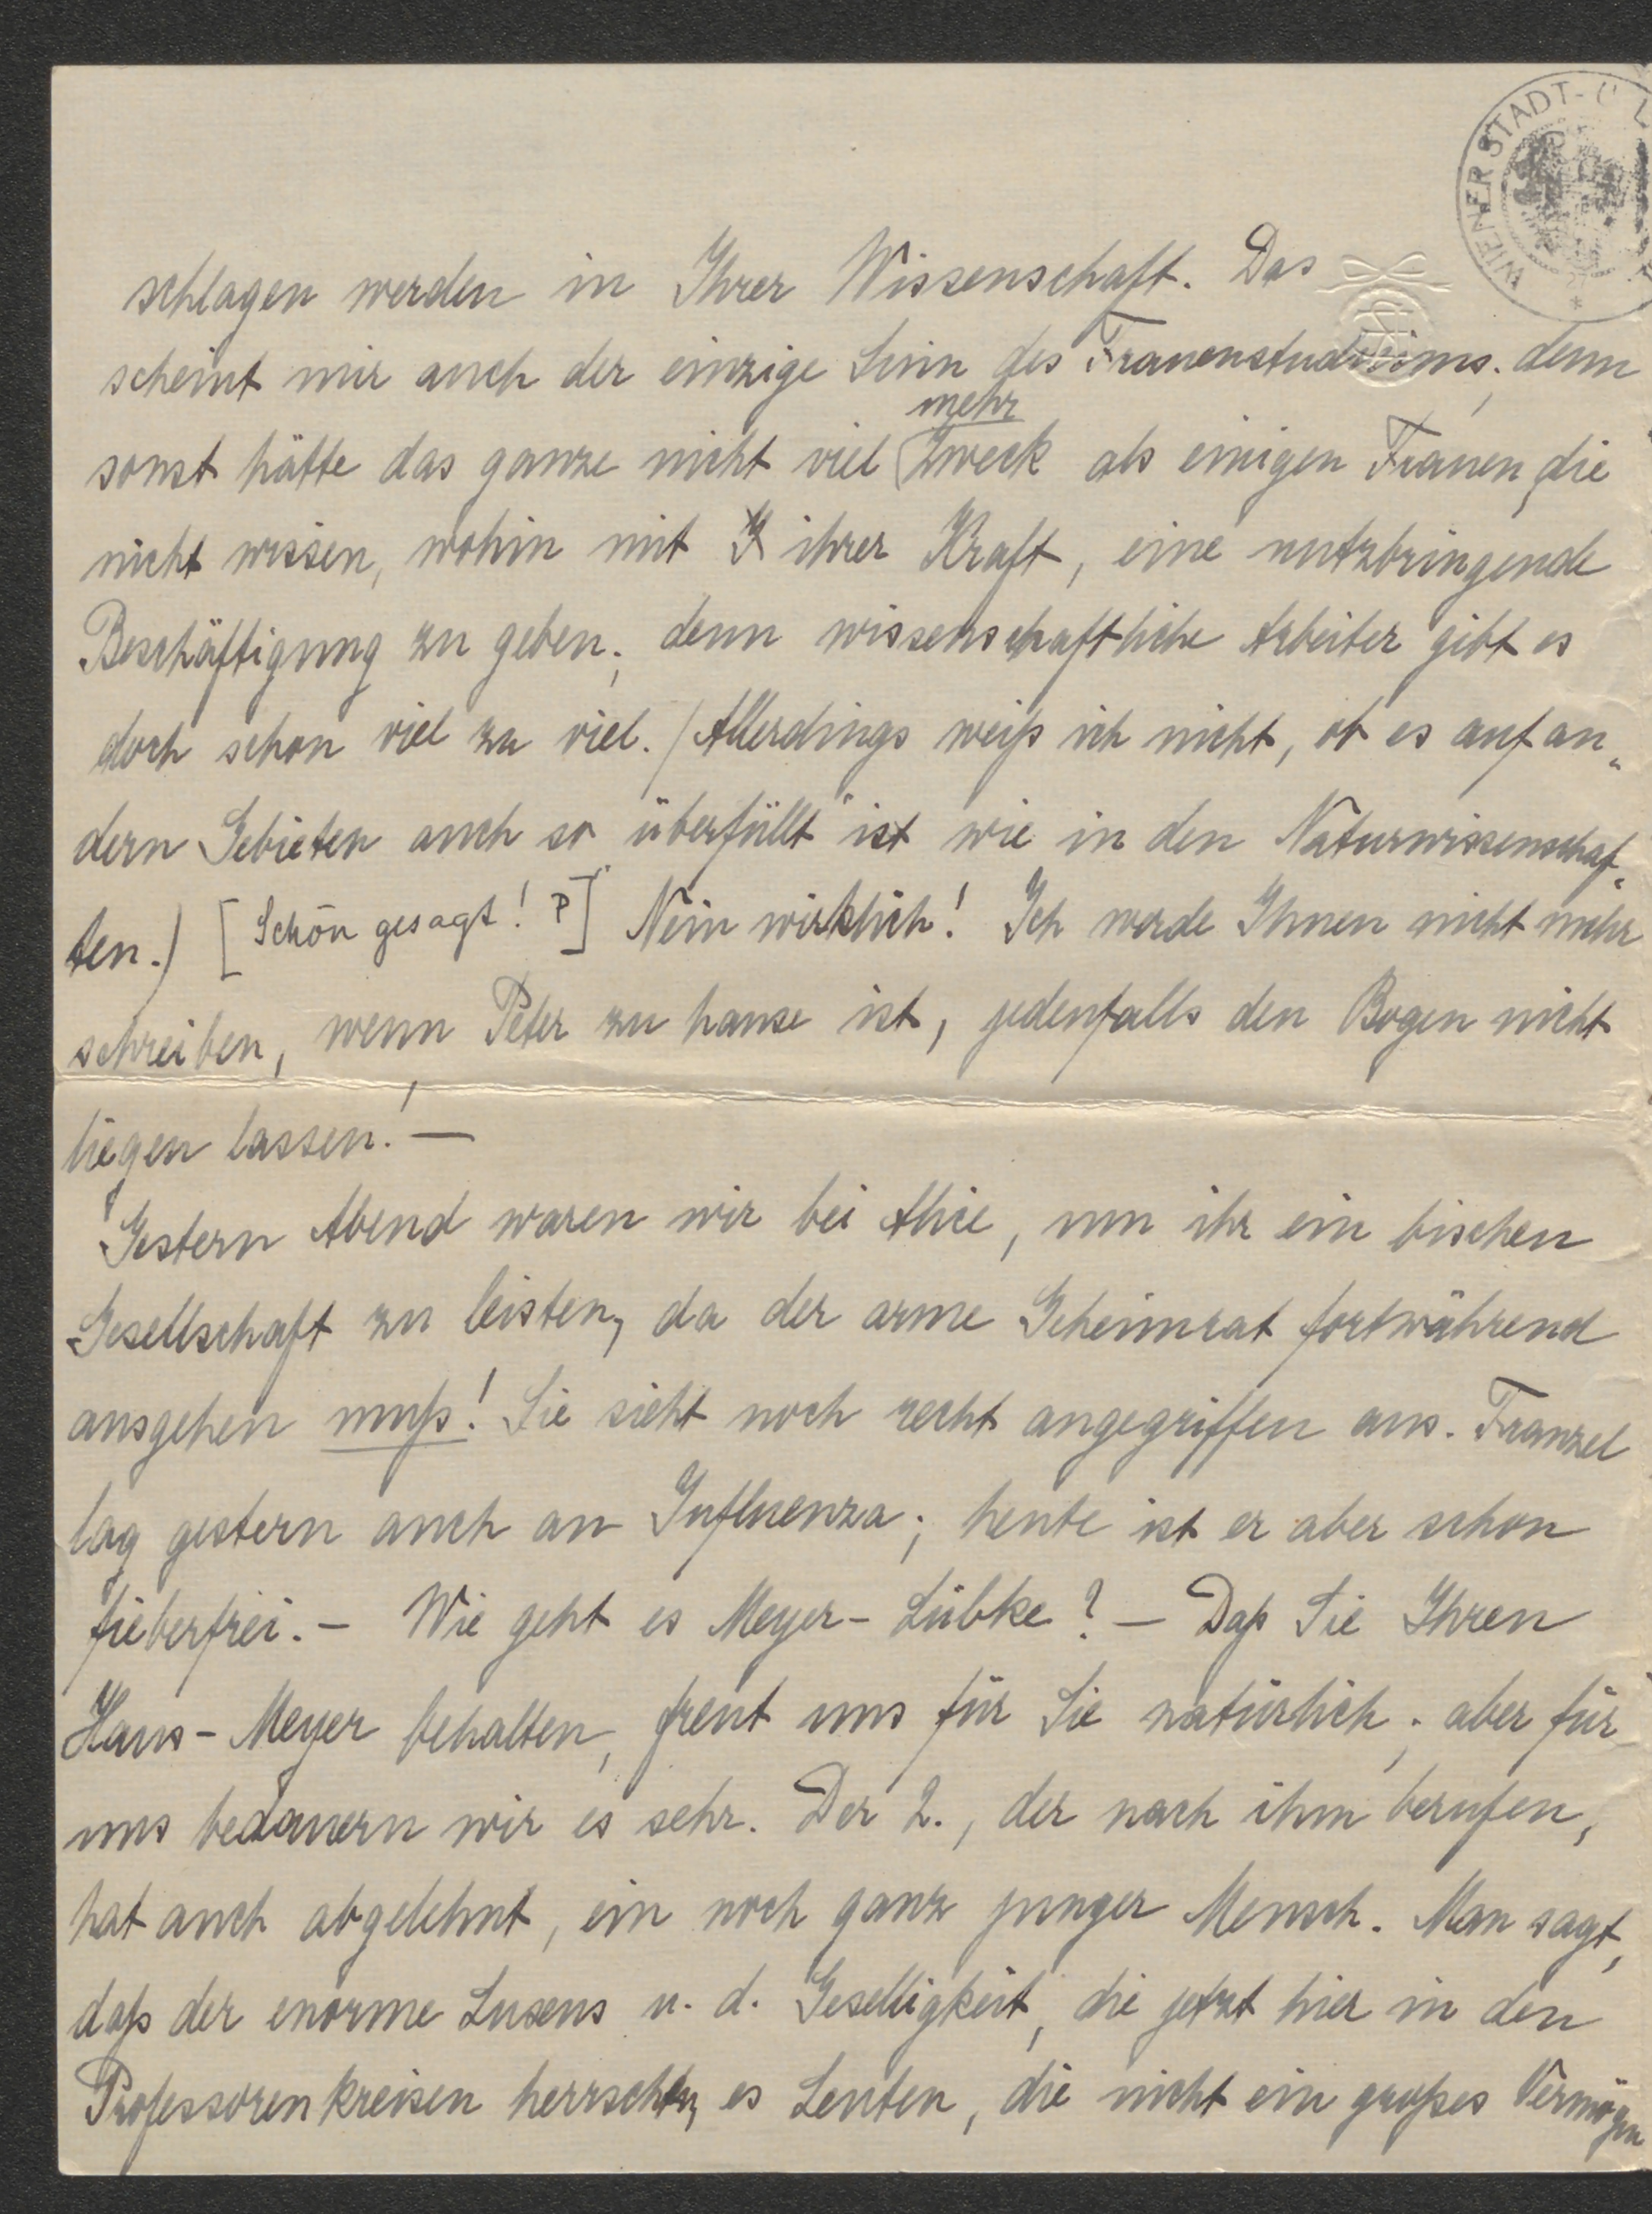 WIENER STADT-
schlagen werden in Ihrer Wissenschaft. Das
scheint mir auch der einzige Sinn des Frauenstudiums; denn
mehr
sonst hätte das ganze nicht viel Zweck als einigen Frauen, die
nicht wissen, wohin mit I ihrer Kraft, eine nutzbringende
Beschäftigung zu geben; denn wissenschaftliche Arbeiter gibt es
doch schon viel zu viel. (Allerdings weiß ich nicht, ob es auf an„
dern Gebieten auch so "überfüllt" ist wie in den Naturwissenschaf„
ten.) [Schön gesagt! P] Nein wirklich! Ich werde Ihnen nicht mehr
schreiben, wenn Peter zu hause ist, jedenfalls den Bogen nicht
liegen lassen! —
Gestern Abend waren wir bei Alice, um ihr ein bischen
Gesellschaft zu leisten, da der arme Geheimrat fortwährend
ausgehen muß! Sie sieht noch recht angegriffen aus. Franzel
lag gestern auch an Influenza; heute ist er aber schon
fieberfrei. — Wie geht es Meyer-Lübke? — Daß Sie Ihren
Hans-Meyer behalten, freut uns für Sie natürlich; aber für
uns bedauern wir es sehr. Der 2., der nach ihm berufen,
hat auch abgelehnt, ein noch ganz junger Mensch. Man sagt,
daß der enorme Luxus u. d. Geselligkeit, die jetzt hier in den
Professorenkreisen herrschen, es Leuten, die nicht ein großes Vermögen